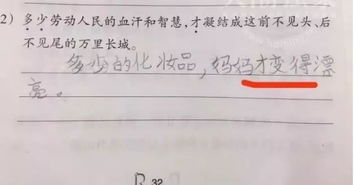 2) 多少劳动人民的血汗和智慧,才凝结成这前不见头、后
不见尾的万里长城。
多少的化妆品，妈妈才变得漂
亮。
32